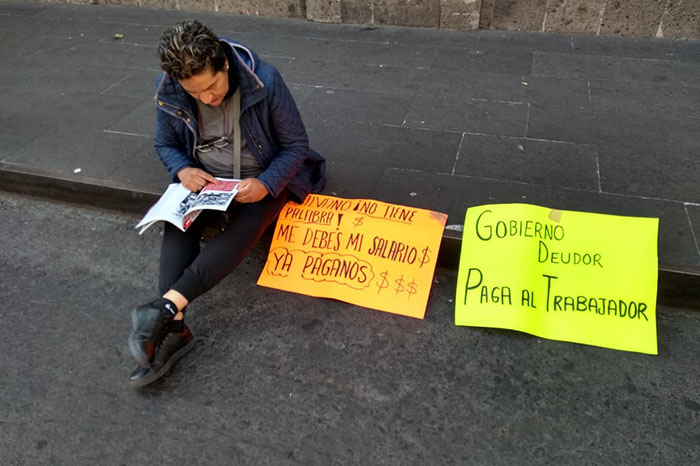 ¡NO TIENE
PALABRA! $
ME DEBES MI SALARIO $
YA PAGANOS $ $ $ $
GOBIERNO
DEUDOR
PAGA AL TRABAJADOR